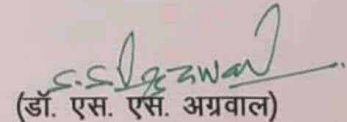 S.S. Agrawal
(डॉ. एस. एस. अग्रवाल)